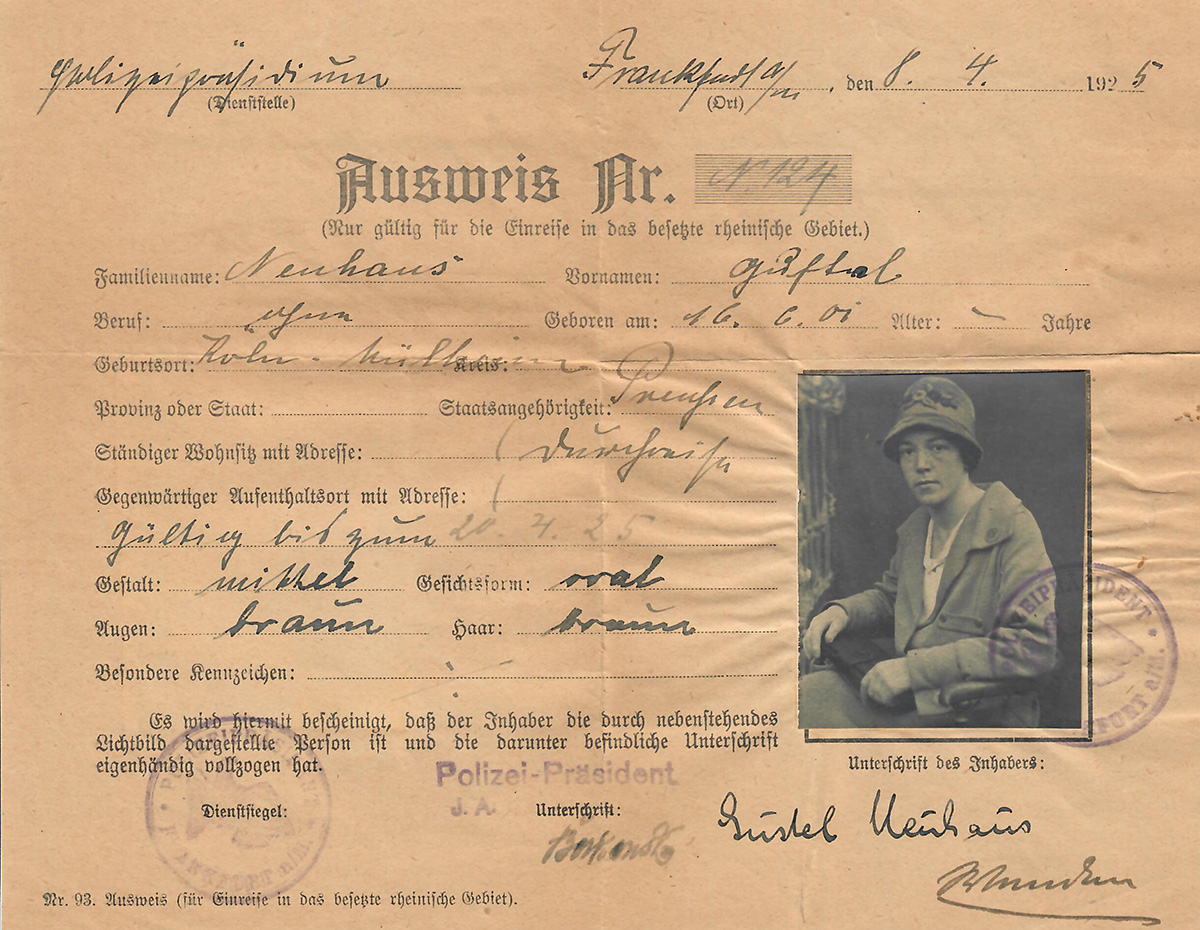 Polizeipräsidium Frankfurt a/M, den 8. 4. 1925
(Dienststelle) (Ort)
Ausweis Nr. N. 124
(Nur gültig für die Einreise in das besetzte rheinische Gebiet.)
Familienname: Neuhaus Vornamen: Gustel
Beruf: ohne Geboren am: 16. 6. 01 Alter: – Jahre
Geburtsort: Köln-Mülheim Kreis:
Provinz oder Staat: Staatsangehörigkeit: Preußen
Ständiger Wohnsitz mit Adresse: ( Durchreise
Gegenwärtiger Aufenthaltsort mit Adresse: (
Gültig bis zum 20. 4. 25
Gestalt: mittel Gesichtsform: oval
Augen: braun Haar: braun
Besondere Kennzeichen:
Es wird hiermit bescheinigt, daß der Inhaber die durch nebenstehendes
Lichtbild dargestellte Person ist und die darunter befindliche Unterschrift
eigenhändig vollzogen hat.
POLIZEIPRÄSIDENT * FRANKFURT a/M. *
Polizei-Präsident
Unterschrift des Inhabers:
Dienstsiegel: J. A. Unterschrift:
Gustel Neuhaus
Nr. 93. Ausweis (für Einreise in das besetzte rheinische Gebiet).